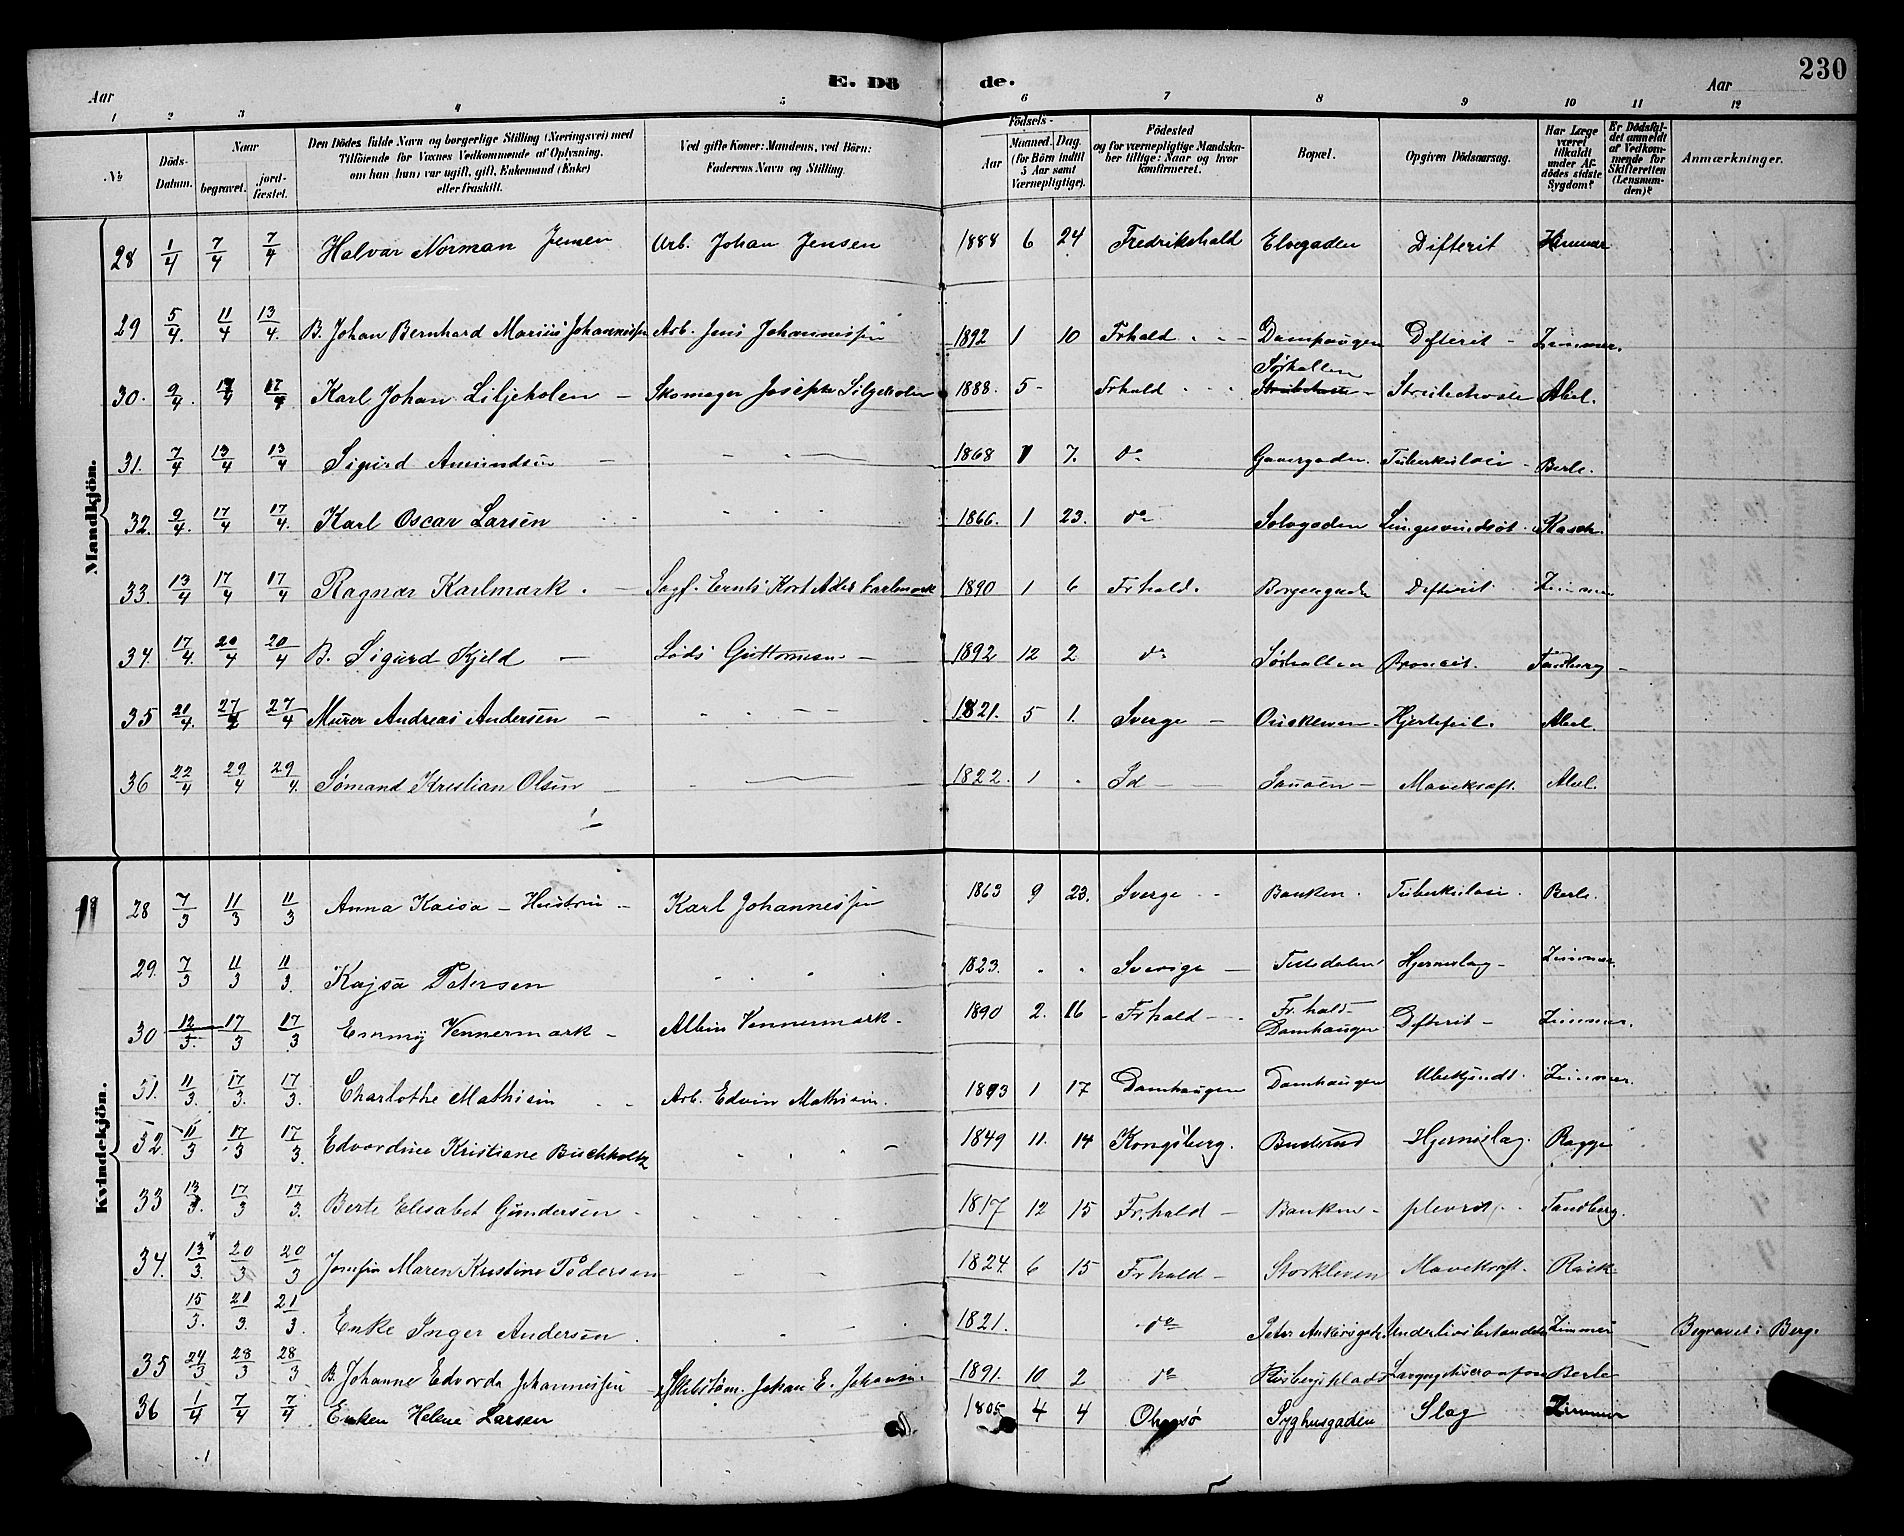 230
E. Dö de.
Aar Aar
1 2 3 4 5 6 7 8 9 10 11 12
No
Döds-Datum.
Naar begravet. jordfæstet.
Den Dödes fulde Navn og borgerlige Stilling (Næringsvei) med Tilföiende for Voxnes Vedkommende af Oplysning, om han (hun) var ugift, gift, Enkemand (Enke) eller fraskilt.
Ved gifte Koner: Mandens, ved Börn: Faderens Navn og Stilling.
Födsels- Aar Maaned. Dag. (for Börn indtil 5 Aar samt Værnepligtige).
Födested og for værnepligtige Mandskaber tillige: Naar og hvor konfirmeret.
Bopæl.
Opgiven Dödsaarsag.
Har Læge været tilkaldt under Afdödes sidste Sygdom?
Er Dödsfaldet anmeldt af Vedkommende for Skifteretten (Lensmanden)?
Anmærkninger.
Mandkjön.
28 1/4 7/4 7/4 Halvar Norman Jensen Arb. Johan Jensen 1888 6 24 Fredrikshald Elvegaden Difterit
29 5/4. 11/4 13/4. B. Johan Bernhard Marius Johannessen Arb. Jens Johannessen 1892 1 10 Frhald Damhaugen Difterit - Zimmer.
30. 9/4. 17/4 17/4 Karl Johan Liljeholen - Skomager Joseph Liljeholen 1888. 5 - Frhald Sørhallen Strubehoste Abel.
31. 7/4 13/4 13/4 Sigurd Amundsen - 1868 1 7. do Tuberkulose - Berle.
32. 9/4. 17/4 17/4. Karl Oscar Larsen 1866. 1 23. do Lungesvindsot Rasch.
33. 13/4 17/4 17/4 Ragnar Karlmark. - Karlmark 1890 1 6 Frhald. Borgergade Difterit Zimmer
34. 17/4. 20/4 20/4 B. Sigurd Kjeld - Lods Guttormsen - 1892 12 2 do Sørhallen Broncit. Tandberg -
35 21/4. 27/4 27/4 Murer Andreas Andersen - 1821. 5 1. Sverge - Hjertefeil. Abel.
36 22/4 29/4 29/4. Sømand Kristian Olsen - 1822. 1 Id - Sauøen - Mavekræft. Abel.
Kvindekjön.
28 7/3 11/3 11/3 Anna Kaisa - Hustru - Karl Johannessen 1863 9 23. Sverge Banken. Tuberkulose. Berle.
29. 7/3 11/3 11/3. Kajsa Petersen 1823. Sverige - Tistedalen Hjerneslag - Zimmer.
30 12/3. 17/3 17/3 Emmy Vennermark - Albin Vennermark - 1890 2. 16 - Frhald - Fr.hald - Damhaugen Difterit - Zimmer.
31. 11/3. 17/3. 17/3. Charlothe Mathisen Arb. Edvin Mathisen. 1893 1 17 Damhaugen Damhaugen Ubekjendt. Zimmer.
32. 11/3 17/3 17/3. Edvardine Kristiane Buchholtz 1849 11. 14 Kongsberg. Hjerneslag. Ragge
33 13/3. 17/3 17/3. Berte Elisabet Gundersen - 1817 12 15 Fr.hald - Banken - plevrit. Tandberg.
34. 13/3. 20/3 20/3 Maren Kristine Pedersen 1824. 6 15 Frhald - Storkleven Mavekræft. Rask
15/3. 21/3. 21/3. Enke Inger Andersen. 1821. do Peter Ankersgade Zimmer Begravet i Berg.
35 24/3 28/3 28/3 B. Johanne Edvarda Johannessen Johan E. Johansen. 1891. 10 2 do Berle
36 1/4 7/4 7/4 Enken Helene Larsen 1805 4 4 Syghusgaden Slag Zimmer